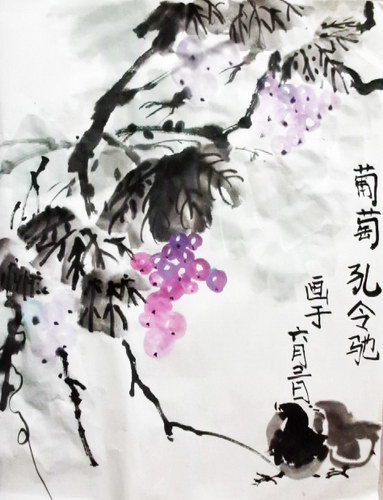 葡萄 孔令驰
画于
六月 日